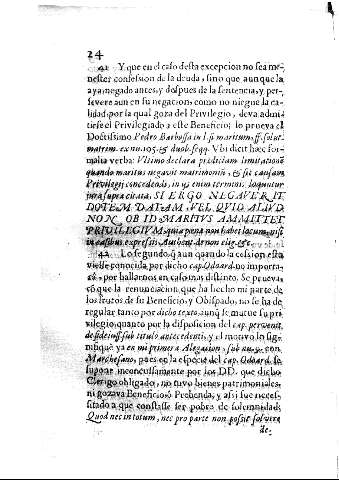 24
42 Y que en el caso desta excepcion no sea me-
nester confession de la deuda, sino que aunque la
aya negado antes, y despues de la sentencia, y per-
severe aun en su negacion, como no niegue la ca-
lidad, por la qual goza del Privilegio, deva admi-
tirse el Privilegiado a este Beneficio, lo prueva el
Doctissimo Pedro Barbossa in l. si maritum, ff. solut.
matrim. ex nu. 105. & duob. seqq. Vbi dicit hæc for-
malia verba: Vltimo declara prædictam limitationẽ
quando maritus negavit matrimonium, & sic causam
Privilegij concedendi, in ijs enim terminis loquuntur
iura supra citata, SI ERGO NEGAVERIT
DOTEM DATAM, VEL QUID ALIUD
NON OB ID MARITUS AMMITTET
PRIVILEGIUM, quia pena non habet locum, nisi
in casibus expressis Authent. de non elig. &c.
42 Lo segundo, q̃ aun quando la cession esta-
viesse conocida por dicho cap. Odoard. no importa-
ra, por hallarnos en caso mas distinto. Se prueva,
cõ que la renunciacion, que ha hecho mi parte de
los frutos de su Beneficio, y Obispado, no se ha de
regular tanto por dicho texto, aunq̃ le motive su pri-
vilegio, quanto por la disposicion del cap. pervenit,
de fideiuss. sub titulo antecedenti, y el motivo lo sig-
nifiquè ya en mi primera Alegacion, sub num. con
Marchesano, pues en la especie del cap. Odoard. se
supone inconcussamente por los DD. que dicho
Clerigo obligado, no tuvo bienes patrimoniales,
ni gozava Beneficio, ò Prebenda, y assi fue neces-
sitado a que constasse ser pobre de solemnidad,
Quod nec in totum, nec pro parte non possit solvere
de-